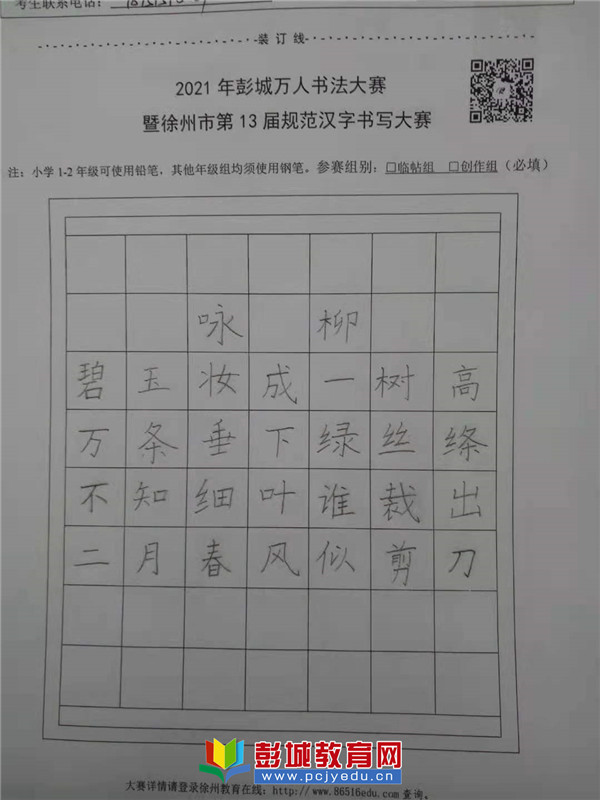 考生联系电话:
装 订 线
2021 年彭城万人书法大赛
暨徐州市第 13 届规范汉字书写大赛
注：小学 1-2 年级可使用铅笔，其他年级组均须使用钢笔。参赛组别：□临帖组 □创作组（必填）
咏 柳
碧 玉 妆 成 一 树 高
万 条 垂 下 绿 丝 绦
不 知 细 叶 谁 裁 出
二 月 春 风 似 剪 刀
彭城教育网
www.pcjyedu.cn
大赛详情请登录徐州教育在线：http://www.86516edu.com 查询。